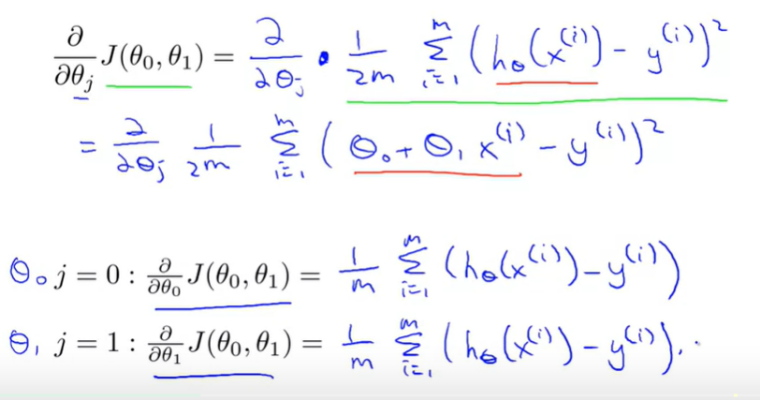 ∂/∂θ_j J(θ_0, θ_1) = ∂/∂θ_j · 1/2m Σ_{i=1}^{m} (h_θ(x^{(i)}) - y^{(i)})^2
= ∂/∂θ_j 1/2m Σ_{i=1}^{m} (θ_0 + θ_1 x^{(i)} - y^{(i)})^2
θ_0 j = 0 : ∂/∂θ_0 J(θ_0, θ_1) = 1/m Σ_{i=1}^{m} (h_θ(x^{(i)}) - y^{(i)})
θ_1 j = 1 : ∂/∂θ_1 J(θ_0, θ_1) = 1/m Σ_{i=1}^{m} (h_θ(x^{(i)}) - y^{(i)}) ·